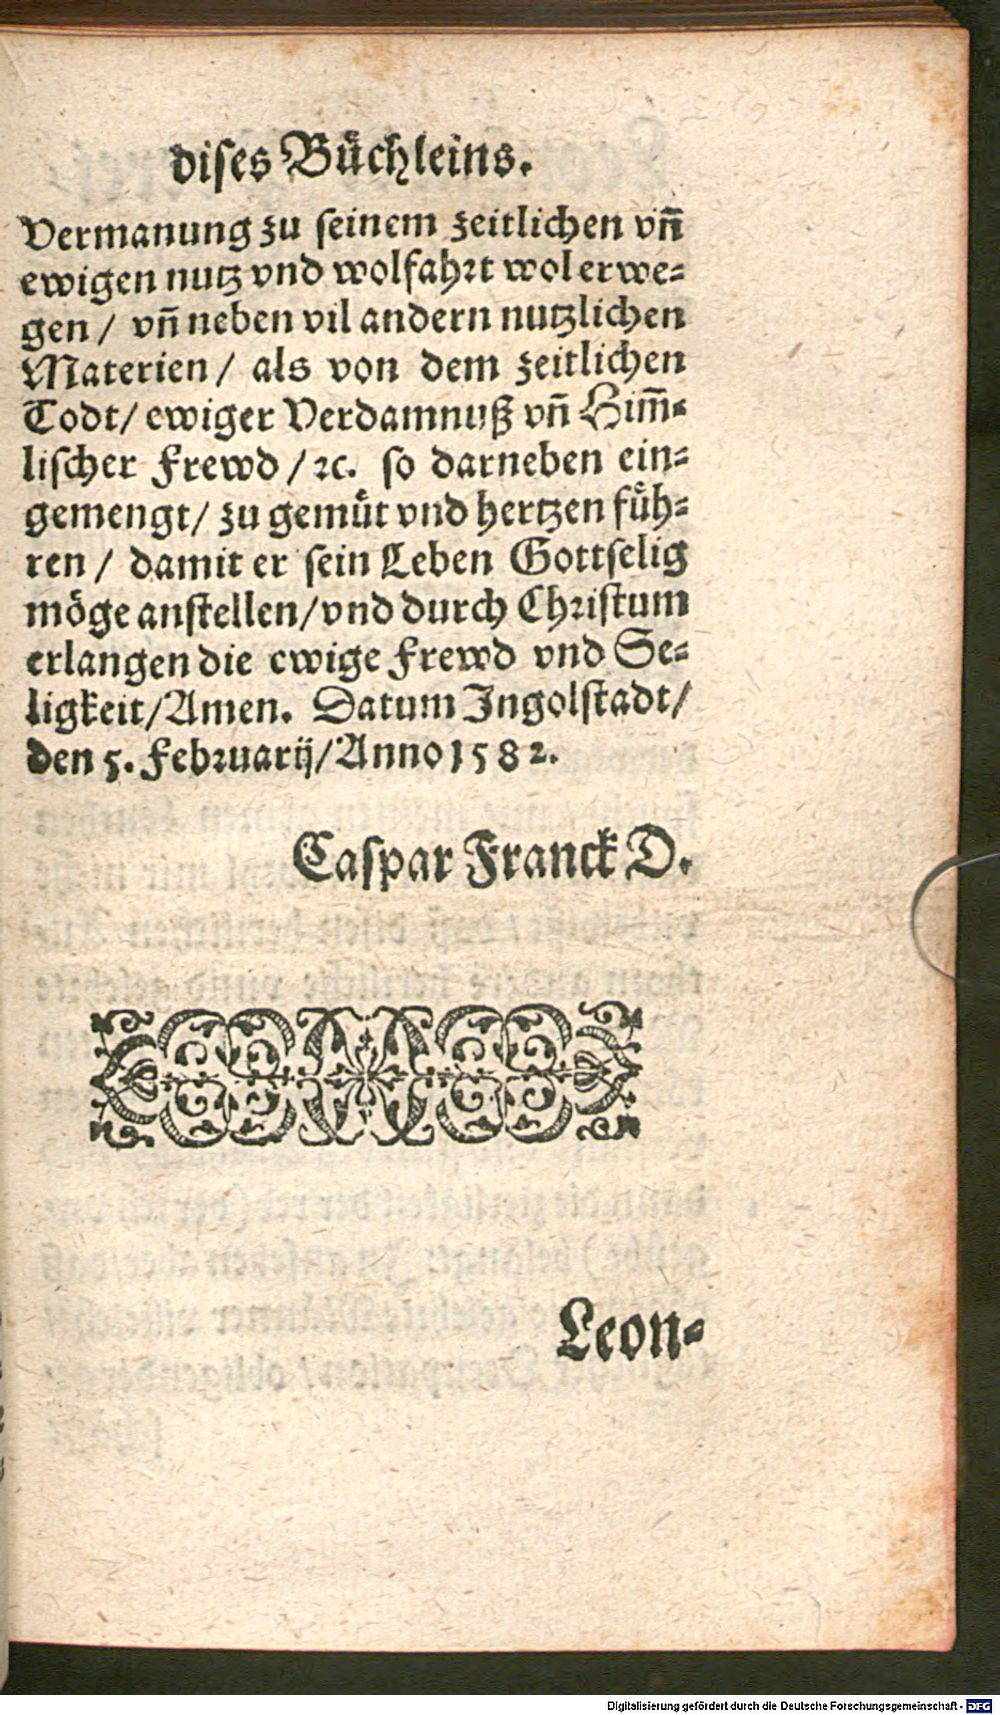 dises Buͤchleins.
Vermanung zu seinem zeitlichen vñ
ewigen nutz vnd wolfahrt wol erwe⸗
gen / vñ neben vil andern nutzlichen
Materien / als von dem zeitlichen
Todt / ewiger Verdamnuß vñ Him̄⸗
lischer Frewd / ꝛc. so darneben ein⸗
gemengt / zu gemuͤt vnd hertzen fuͤh⸗
ren / damit er sein Leben Gottselig
moͤge anstellen / vnd durch Christum
erlangen die ewige Frewd vnd Se⸗
ligkeit / Amen. Datum Ingolstadt /
den 5. Februarij / Anno 1582.
Caspar Franck D.
Leon⸗
Digitalisierung gefördert durch die Deutsche Forschungsgemeinschaft - DFG